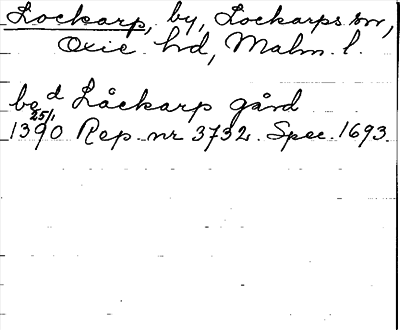 Lockarp, by, Lockarps sn,
Oxie hd, Malm. l.
bo d Låckarp gård
25/1
1390 Rep. nr 3732. Spec. 1693.